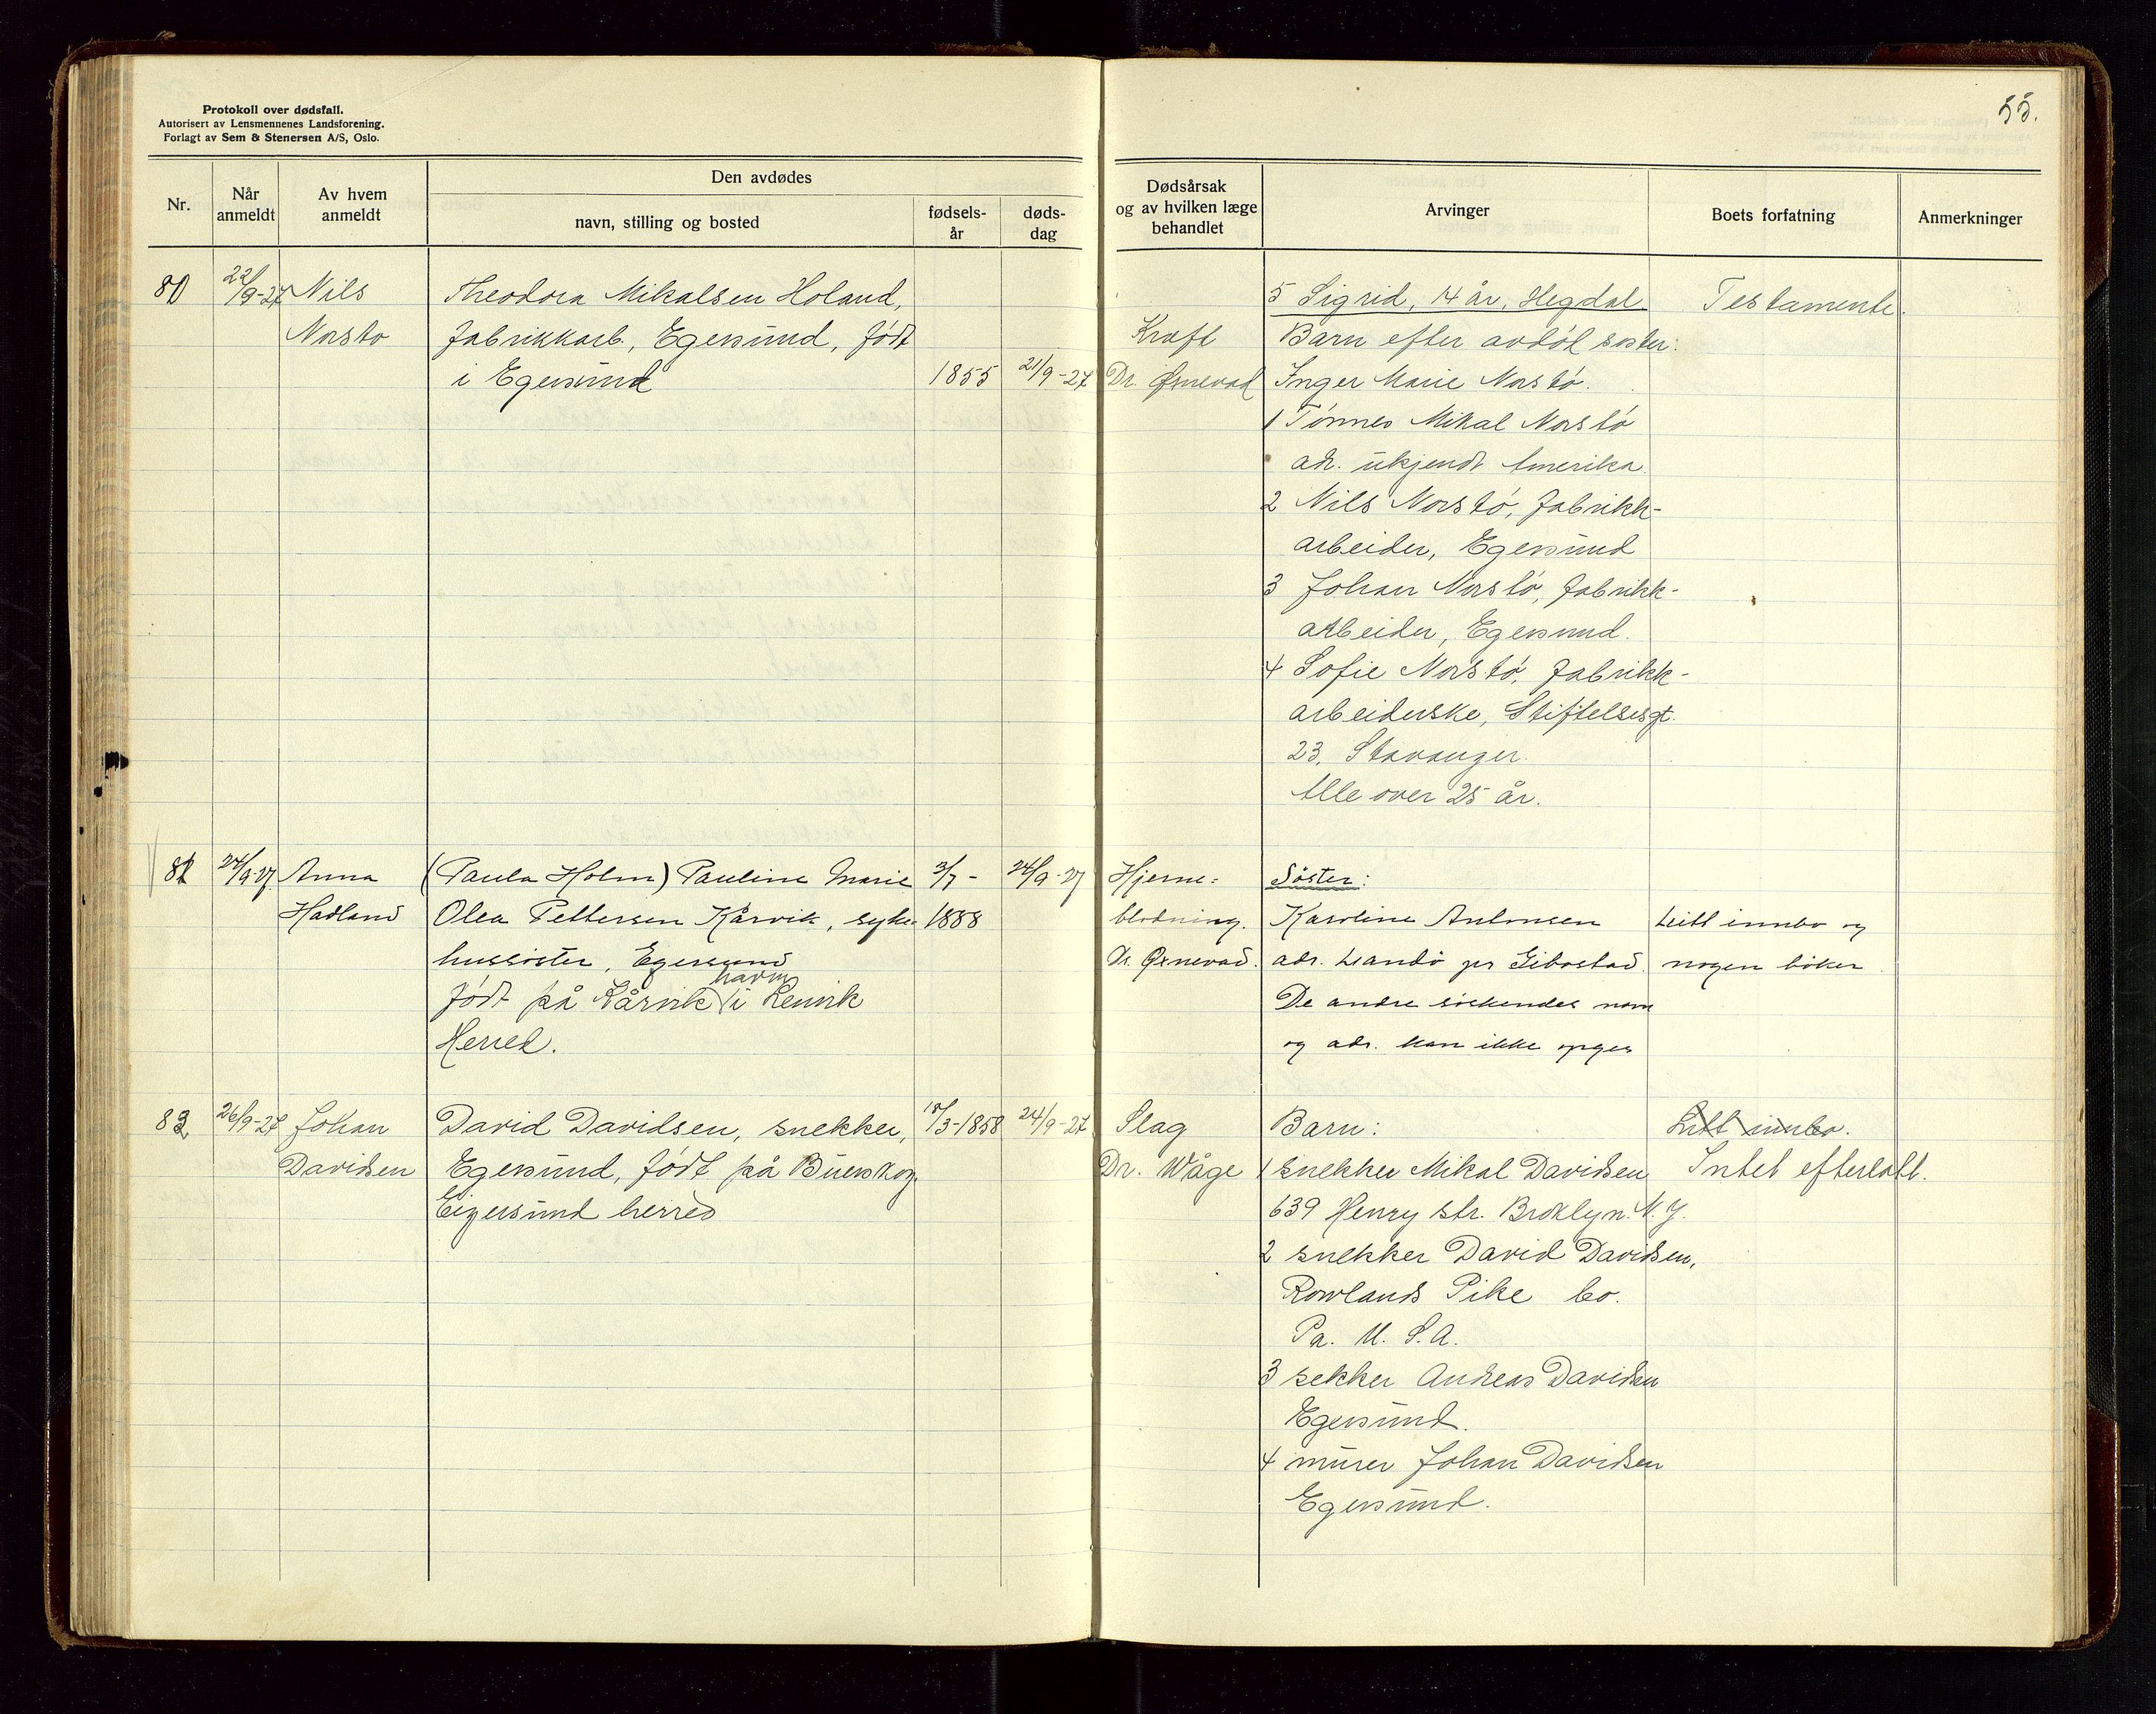 55.
Protokoll over dødsfall.
Autorisert av Lensmennenes Landsforening.
Forlagt av Sem & Stenersen A/S, Oslo.
Nr.
Når anmeldt
Av hvem anmeldt
Den avdødes
navn, stilling og bosted
fødsels-år
døds-dag
Dødsårsak
og av hvilken læge
behandlet
Arvinger
Boets forfatning
Anmerkninger
22/9-27 Nils
Norstø
Theodora Mikalsen Holand,
fabrikkarb., Egersund, født
i Egersund 1855 21/9-27
Kreft
Dr. Ørnevad
5 Sigrid, 14 år, Hegdal
Barn efter avdøl søster:
Inger Marie Norstø.
1 Tønnes Mikal Norstø
adr. ukjendt Amerika.
2 Nils Norstø, fabrikk-
arbeider, Egersund
3 Johan Norstø, fabrikk-
arbeider, Egersund.
4 Sofie Norstø, fabrikk-
arbeiderske, Stiftelsesgt.
23, Stavanger.
Alle over 25 år.
Testamente.
24/9-27 Anna
Hadland
(Paula Holm) Pauline Marie
Olea Pettersen Kårvik, syke-
hussøster, Egersund
født på Kårvik havn i Lenvik
Herred.
3/7-
1888
24/9-27
Hjerne-
blødning.
Dr. Ørnevad.
Søster:
Karoline Antonsen
adr. Sandø pr Gibostad.
De andre søskendes navn
og adr. kan ikke opges
Litt innbo og
nogen bøker
83 26/9-27 Johan
Davidsen
David Davidsen, snekker,
Egersund, født på Buerskog,
Eigersund herred
18/3-1858 24/9-27
Slag
Dr. Wåge
Barn:
1 snekker Mikal Davidsen
639 Henry str. Broklyn. N.Y.
2 snekker David Davidsen,
Rowlands Pike Co.
Pa. U. S. A.
3 sekker Andreas Davidsen
Egersund.
4 murer Johan Davidsen
Egersund.
Litt innbo.
Intet efterlatt.